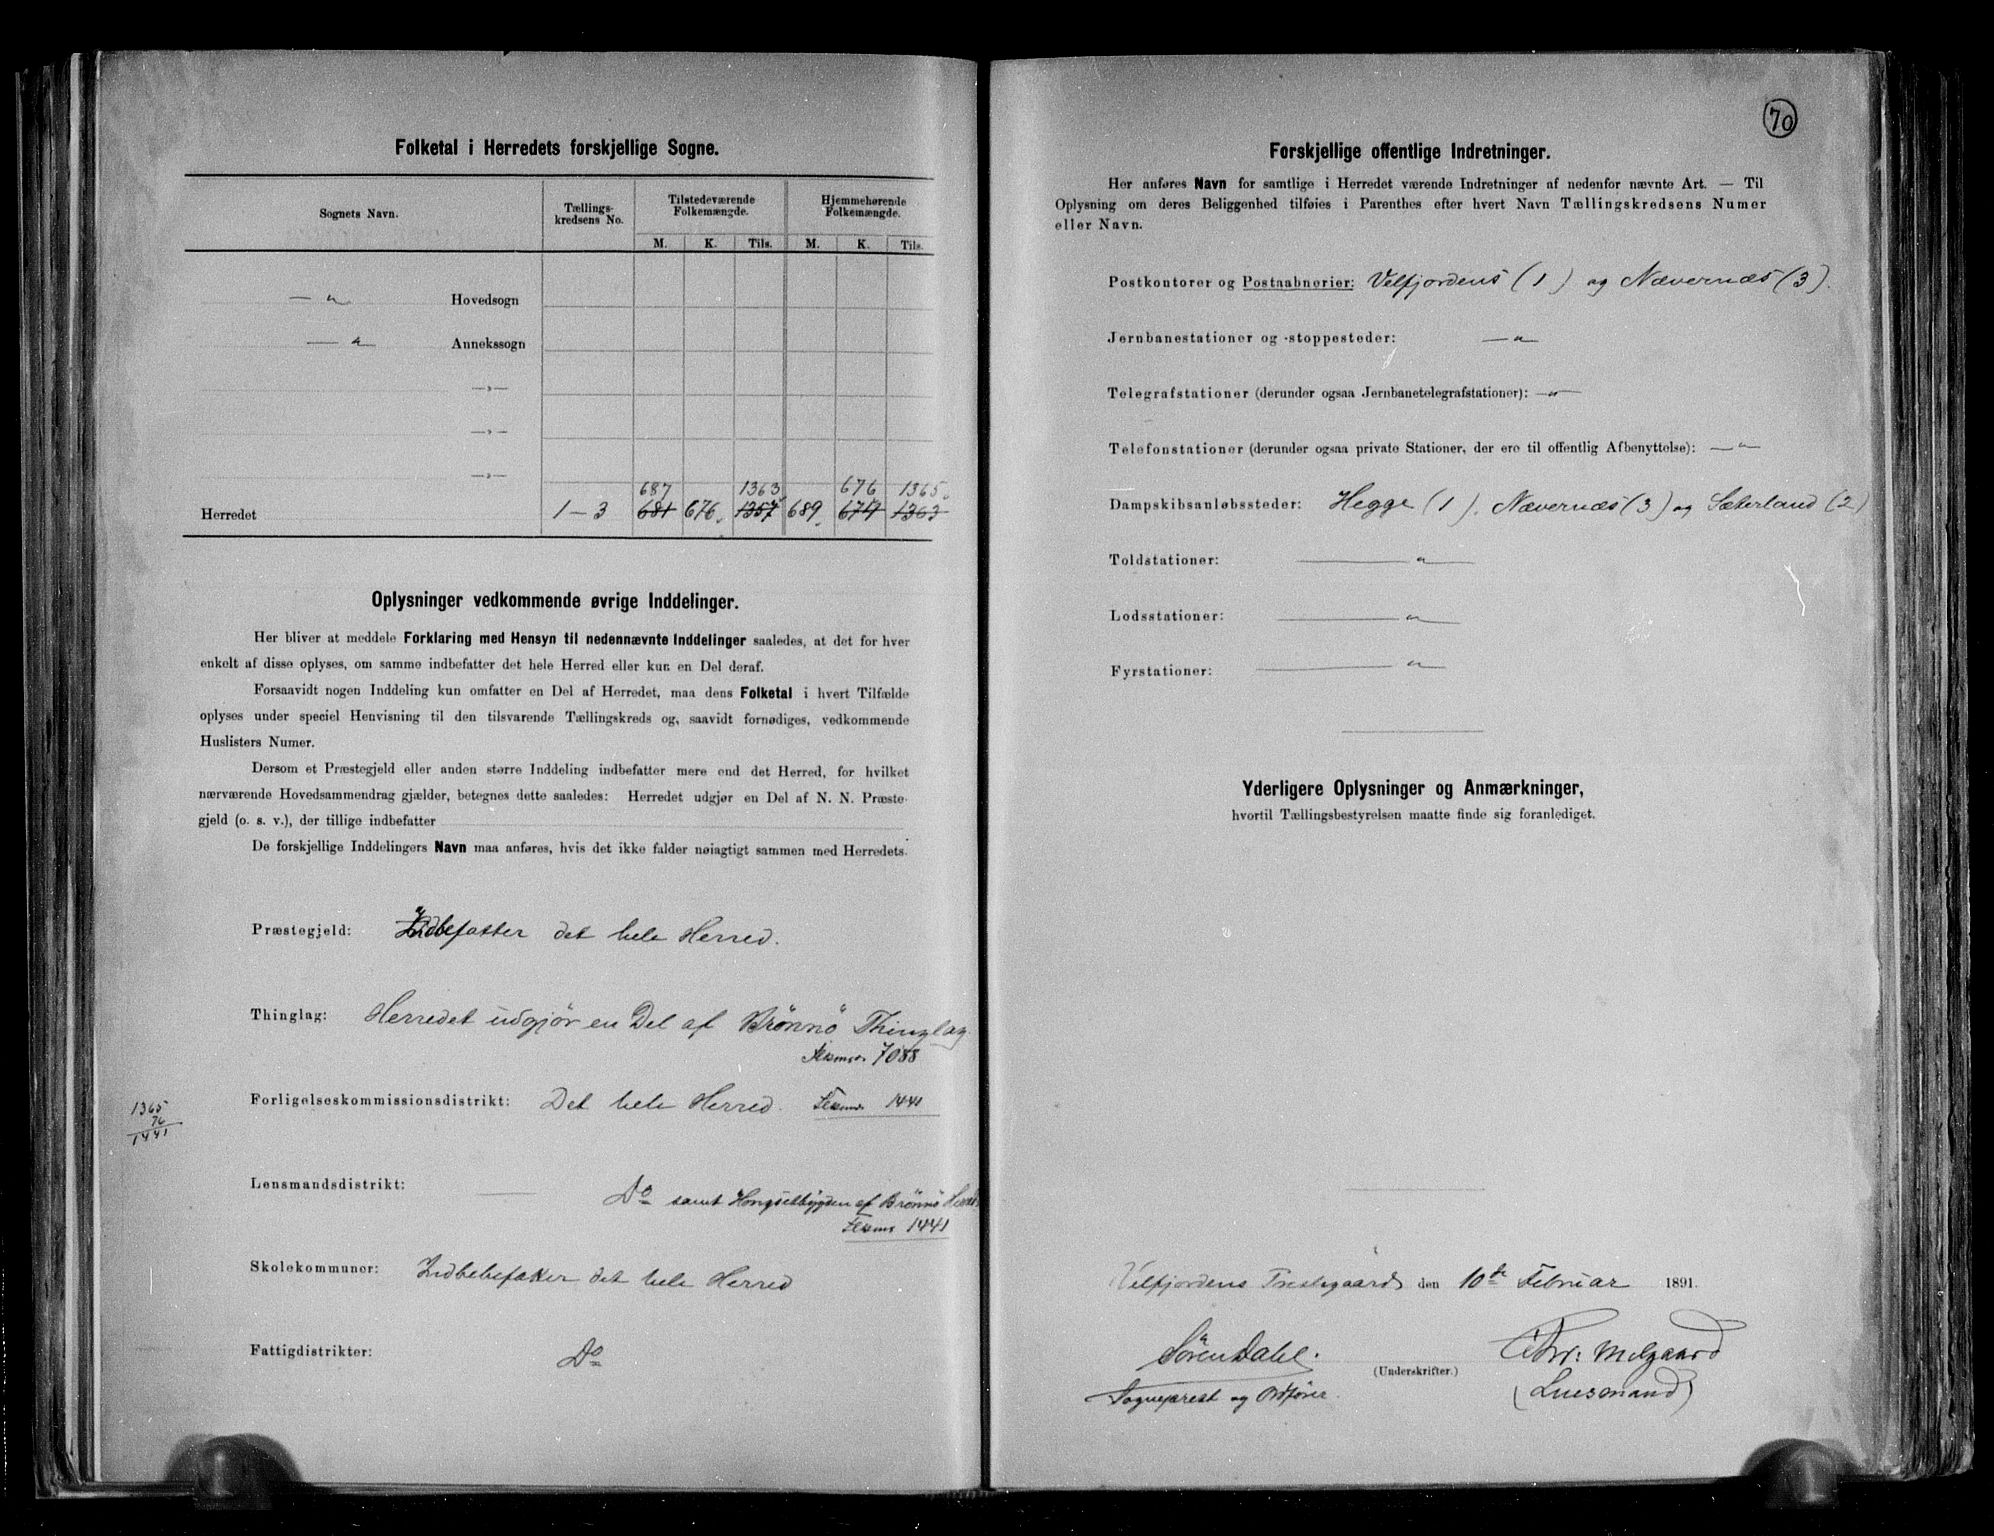 Folketal i Herredets forskjellige Sogne.
Sognets Navn. Tællings-kredsens No. Tilstedeværende Folkemængde. Hjemmehørende Folkemængde.
M. K. Tils. M. K. Tils.
— „ Hovedsogn
— „ Annekssogn
—„—
—„—
—„—
687 1363 676 1365.
Herredet 1–3 681 676. 1357 689. 674 1363
Oplysninger vedkommende øvrige Inddelinger.
Her bliver at meddele Forklaring med Hensyn til nedennævnte Inddelinger saaledes, at det for hver
enkelt af disse oplyses, om samme indbefatter det hele Herred eller kun en Del deraf.
Forsaavidt nogen Inddeling kun omfatter en Del af Herredet, maa dens Folketal i hvert Tilfælde
oplyses under speciel Henvisning til den tilsvarende Tællingskreds og, saavidt fornødiges, vedkommende
Huslisters Numer.
Dersom et Præstegjeld eller anden større Inddeling indbefatter mere end det Herred, for hvilket
nærværende Hovedsammendrag gjælder, betegnes dette saaledes: Herredet udgjør en Del af N. N. Præste-
gjeld (o. s. v.), der tillige indbefatter
De forskjellige Inddelingers Navn maa anføres, hvis det ikke falder nøiagtigt sammen med Herredets.
Præstegjeld: Indbefatter det hele Herred.
Thinglag: Herredet udgjör en Del af Brönnö Thinglag
7088
Forligelseskommissionsdistrikt: Det hele Herred. 1441
1365
76
1441
Lensmandsdistrikt: Do samt Hongsetbygden af Brönnö Herred
1441
Skolekommuner: Indbebefatter det hele Herred
Fattigdistrikter: Do
70
Forskjellige offentlige Indretninger.
Her anføres Navn for samtlige i Herredet værende Indretninger af nedenfor nævnte Art. — Til
Oplysning om deres Beliggenhed tilføies i Parenthes efter hvert Navn Tællingskredsens Numer
eller Navn.
Postkontorer og Postaabnerier: Velfjordens (1) og Nævernæs (3).
Jernbanestationer og -stoppesteder: — „
Telegrafstationer (derunder ogsaa Jernbanetelegrafstationer): — „
Telefonstationer (derunder ogsaa private Stationer, der ere til offentlig Afbenyttelse): — „
Dampskibsanløbssteder: Hegge (1). Nævernæs (3) og Sæterland (2)
Toldstationer: — „
Lodsstationer: — „
Fyrstationer: — „
Yderligere Oplysninger og Anmærkninger,
hvortil Tællingsbestyrelsen maatte finde sig foranlediget.
Velfjordens Prestegaard den 10de Februar 1891.
Sören Dahl. Chr: Melgaard
(Underskrifter.)
Sogneprest og Ordförer. (Lensmand)